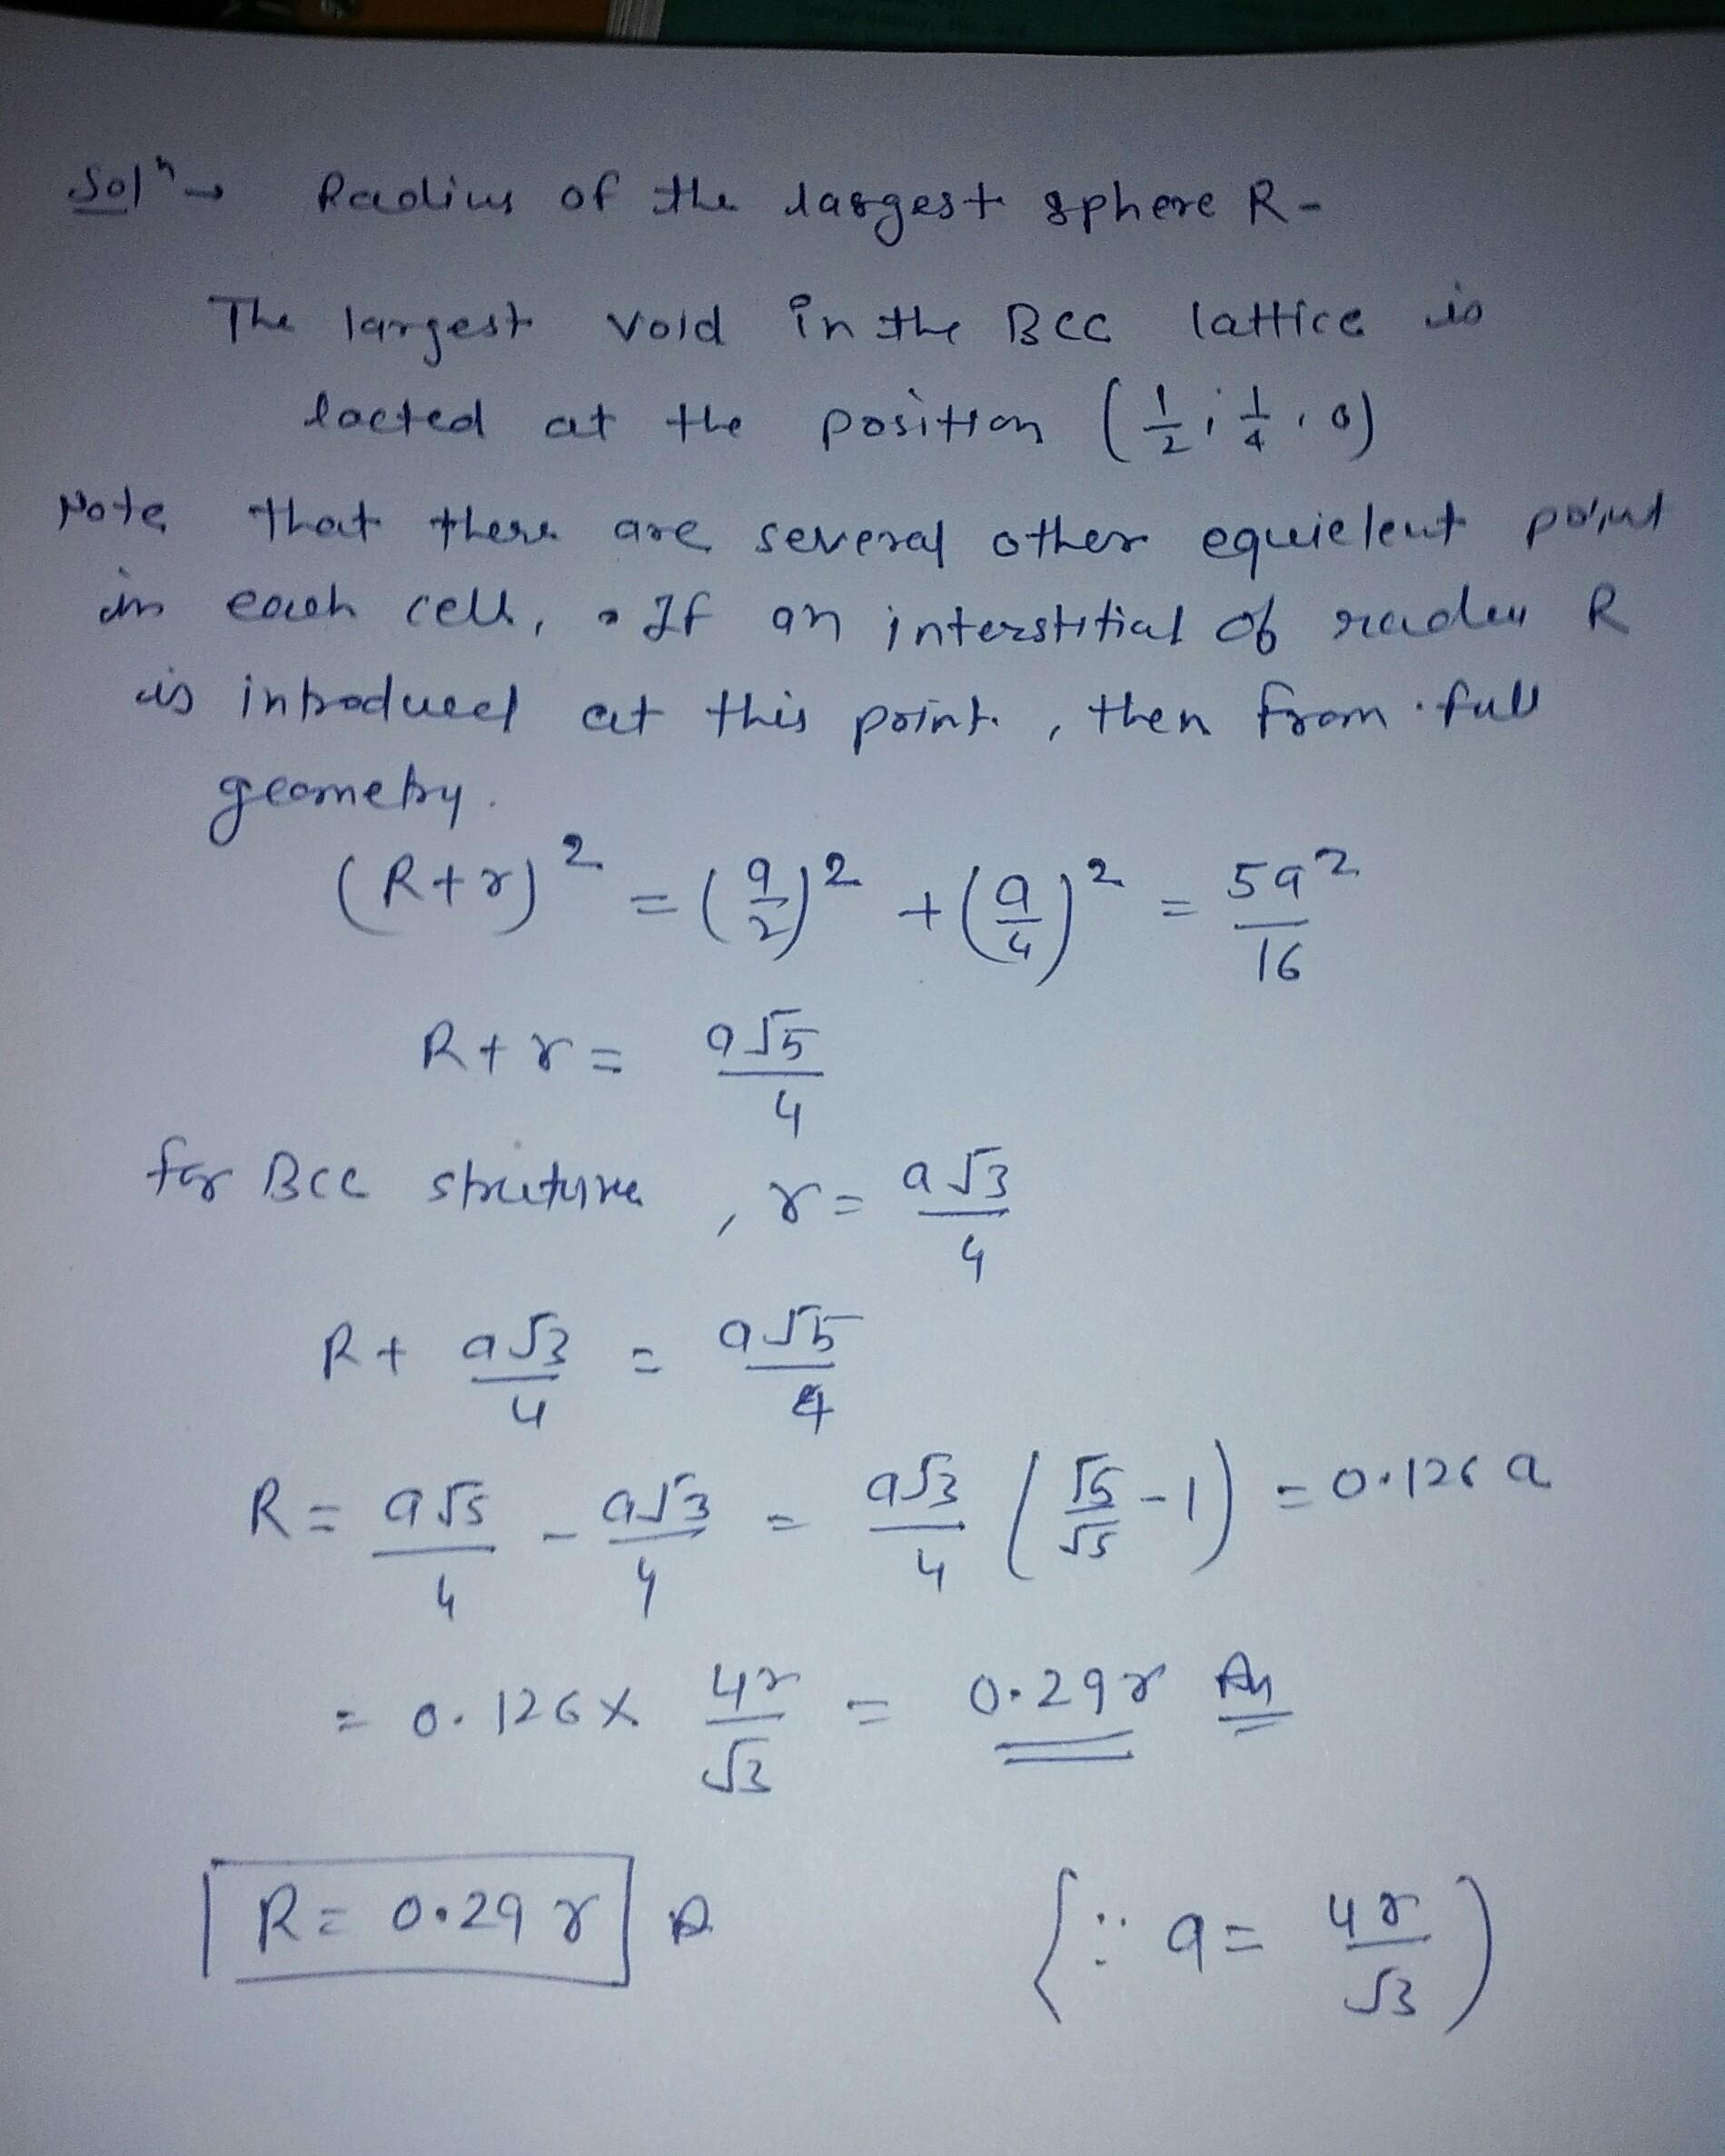 Solⁿ → Radius of the largest sphere R-
The largest void in the BCC lattice is
locted at the position (1/2, 1/4, 0)
Note that there are several other equielent point
in each cell, If an interstitial of radiu R
is introduced at this point, then from full
geometry.
(R+r)² = (a/2)² + (a/4)² = 5a²/16
R+r = a√5/4
for BCC struture, r = a√3/4
R + a√3/4 = a√5/4
R = a√5/4 - a√3/4 = a√3/4 (√5/√5 - 1) = 0.126 a
= 0.126 x 4r/√3 = 0.29r
R = 0.29 r {∵ a = 4r/√3)